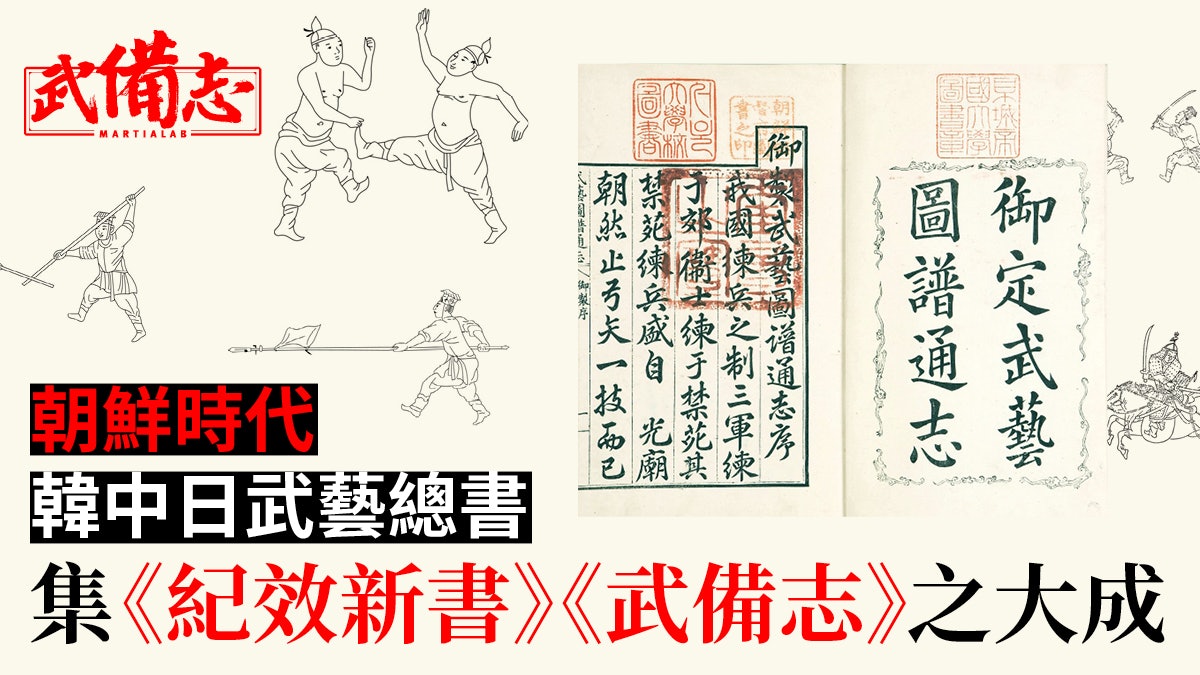 武備志
MARTIALAB
朝鮮時代
韓中日武藝總書
集《紀效新書》《武備志》之大成
御定武藝
圖譜通志
京城帝
國大學
圖書章
御製武藝圖譜通志序
我國練兵之制三軍練
于郊衛士練于禁苑其
禁苑練兵盛自 光廟
朝然止弓矢一技而已
藝圖譜通志 御製序